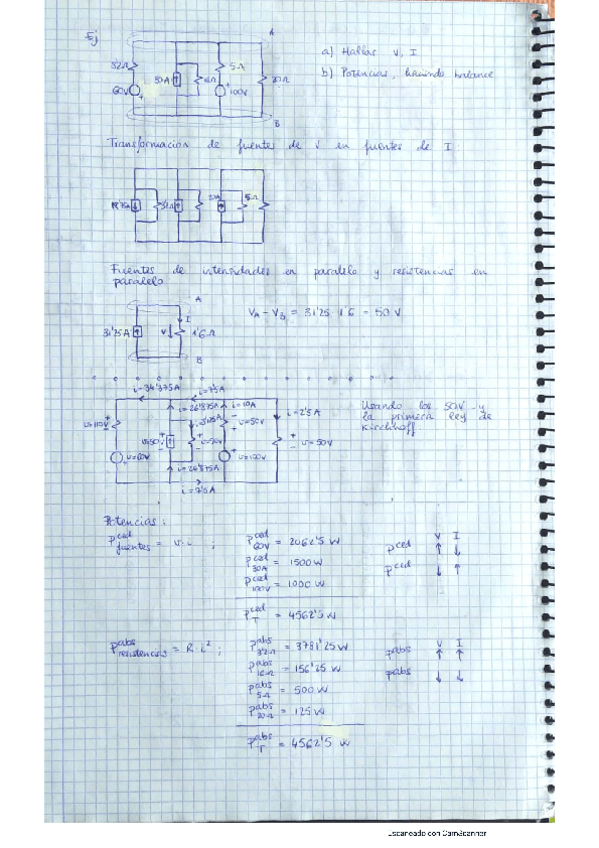 Ej
a) Hallar V, I
b) Potencias, haciendo balance
A
3'2Ω
30A
16Ω
5Ω
20Ω
60V
100V
B
Transformación de fuentes de V en fuentes de I
5Ω
Fuentes de intensidades en paralelo y resistencias en
paralelo
A
I
31'25A
V
1'6Ω
B
VA - VB = 31'25 · 1'6 = 50 V
i=34'375A
i=7'5A
i=26'875A
i=10A
i=2'5A
v=110V
v=50V
v=50V
v=50V
v=60V
v=100V
i=26'875A
i=7'5A
Usando los 50V y
la primera ley de
Kirchhoff
Potencias:
P ced fuentes = v · i ;
P ced 60V = 2062'5 W
P ced 30A = 1500 W
P ced 100V = 1000 W
P ced T = 4562'5 W
V I
P ced ↑ ↓
P ced ↓ ↑
P abs resistencias = R · i² ;
P abs 3'2Ω = 3781'25 W
P abs 16Ω = 156'25 W
P abs 5Ω = 500 W
P abs 20Ω = 125 W
P abs T = 4562'5 W
V I
P abs ↑ ↑
P abs ↓ ↓
Escaneado con CamScanner